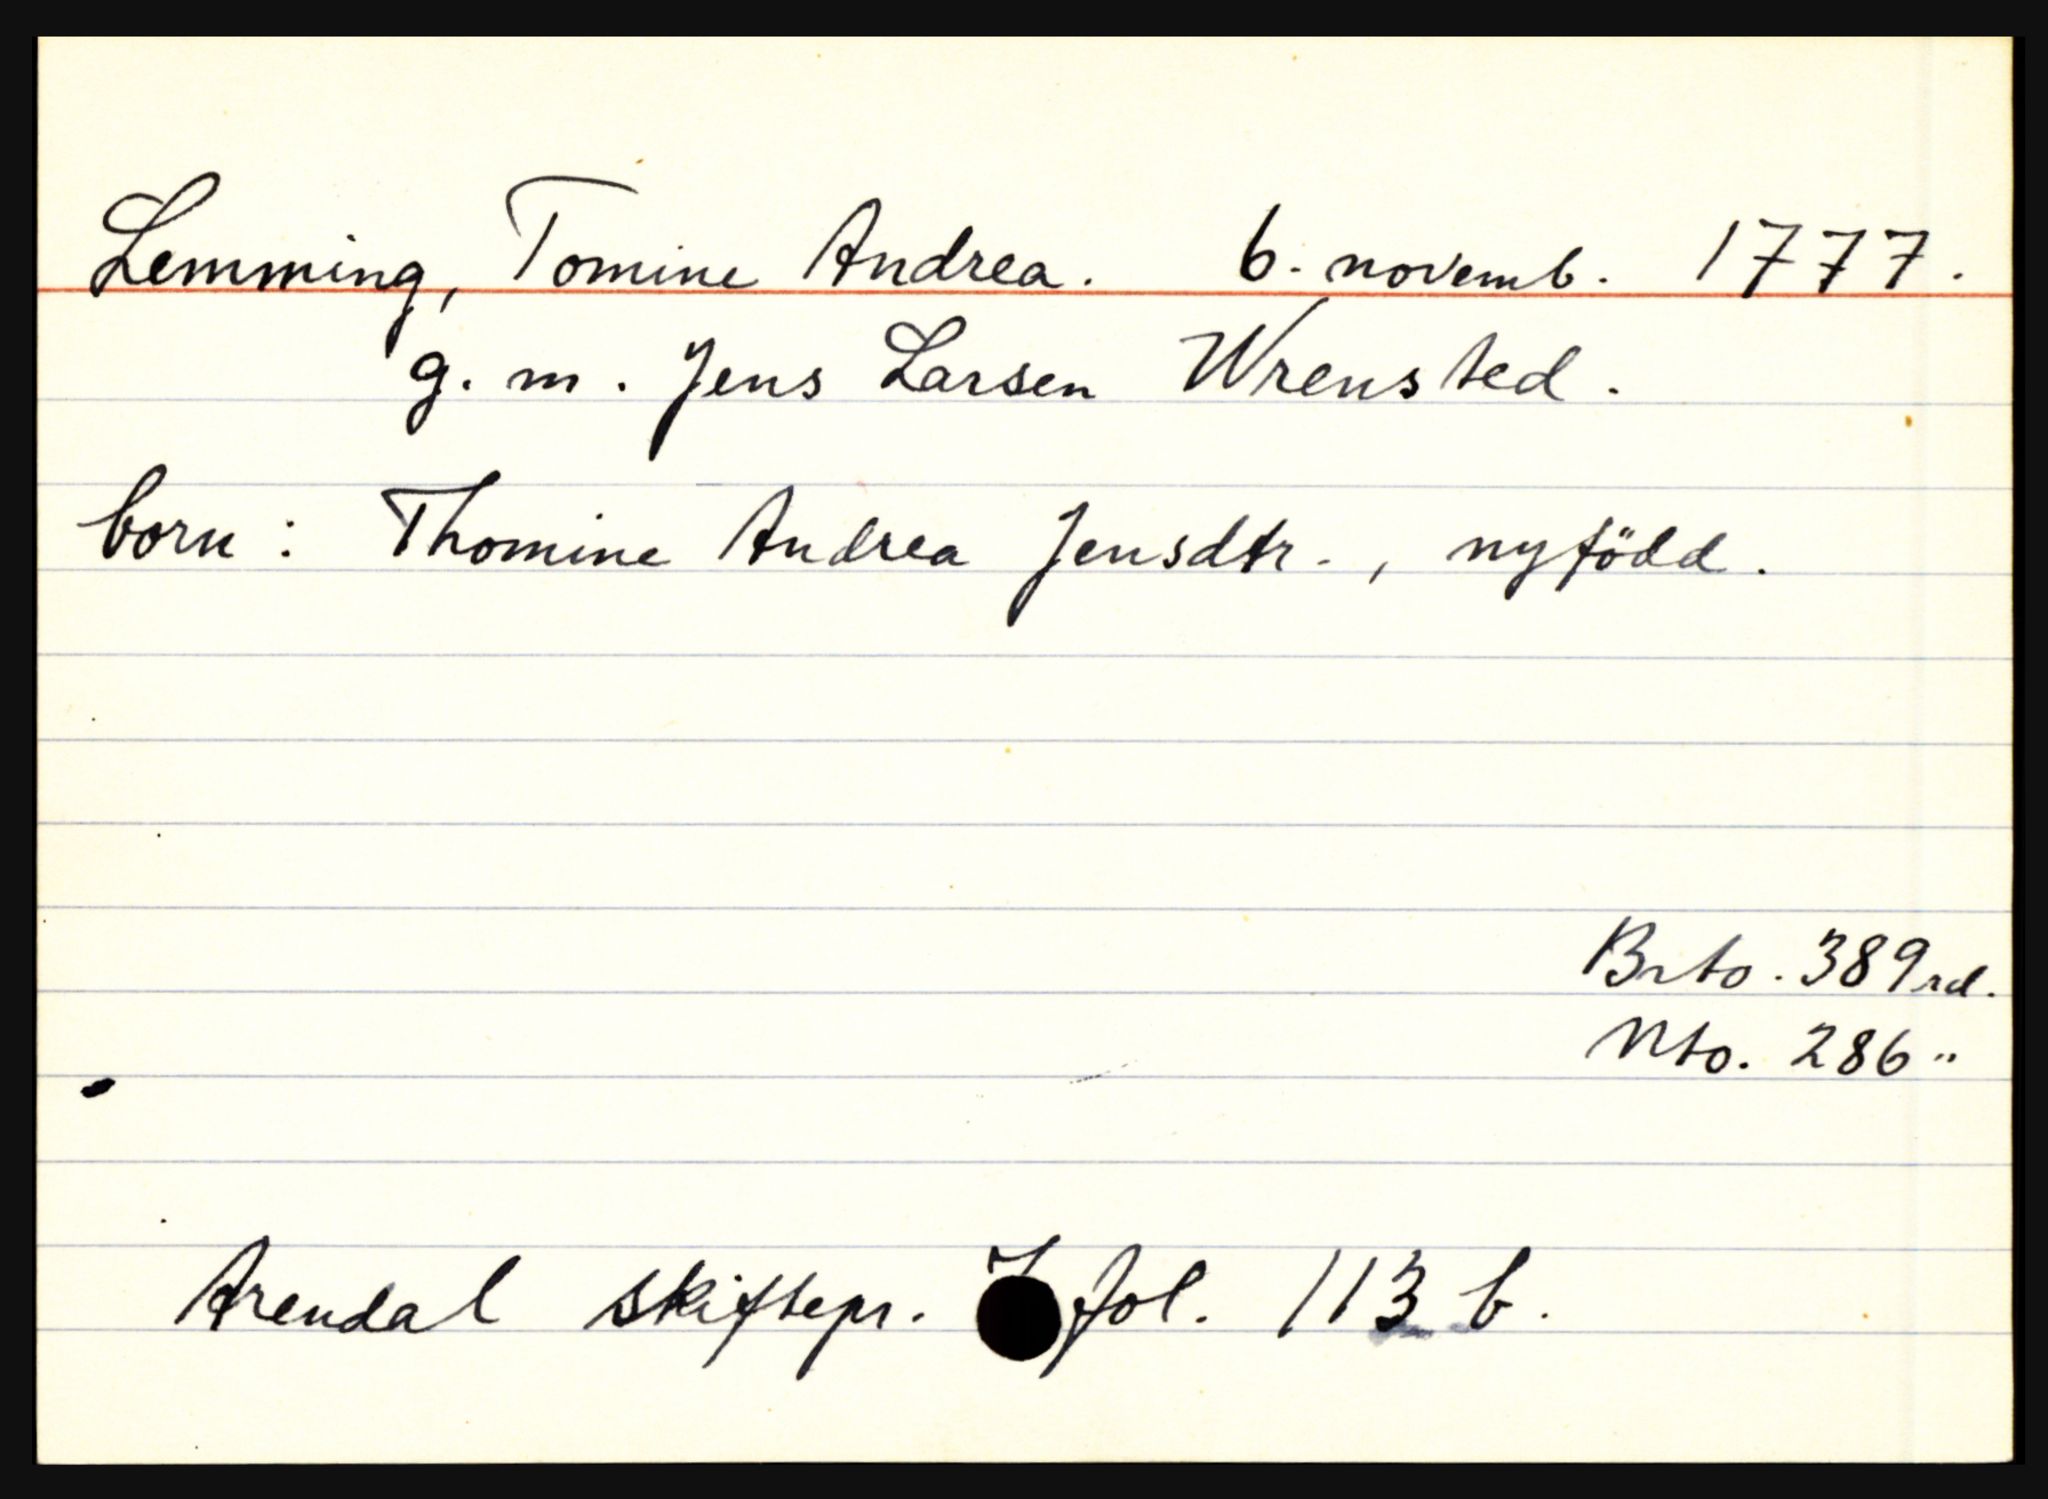 Lemming, Tomine Andrea. 6. novemb. 1777.
g. m. Jens Larsen Wrensted.
born: Thomine Andrea Jensdtr., nyfödd.
Brto. 389 rd.
Nto. 286 "
Arendal skiftepr. fol. 113 b.